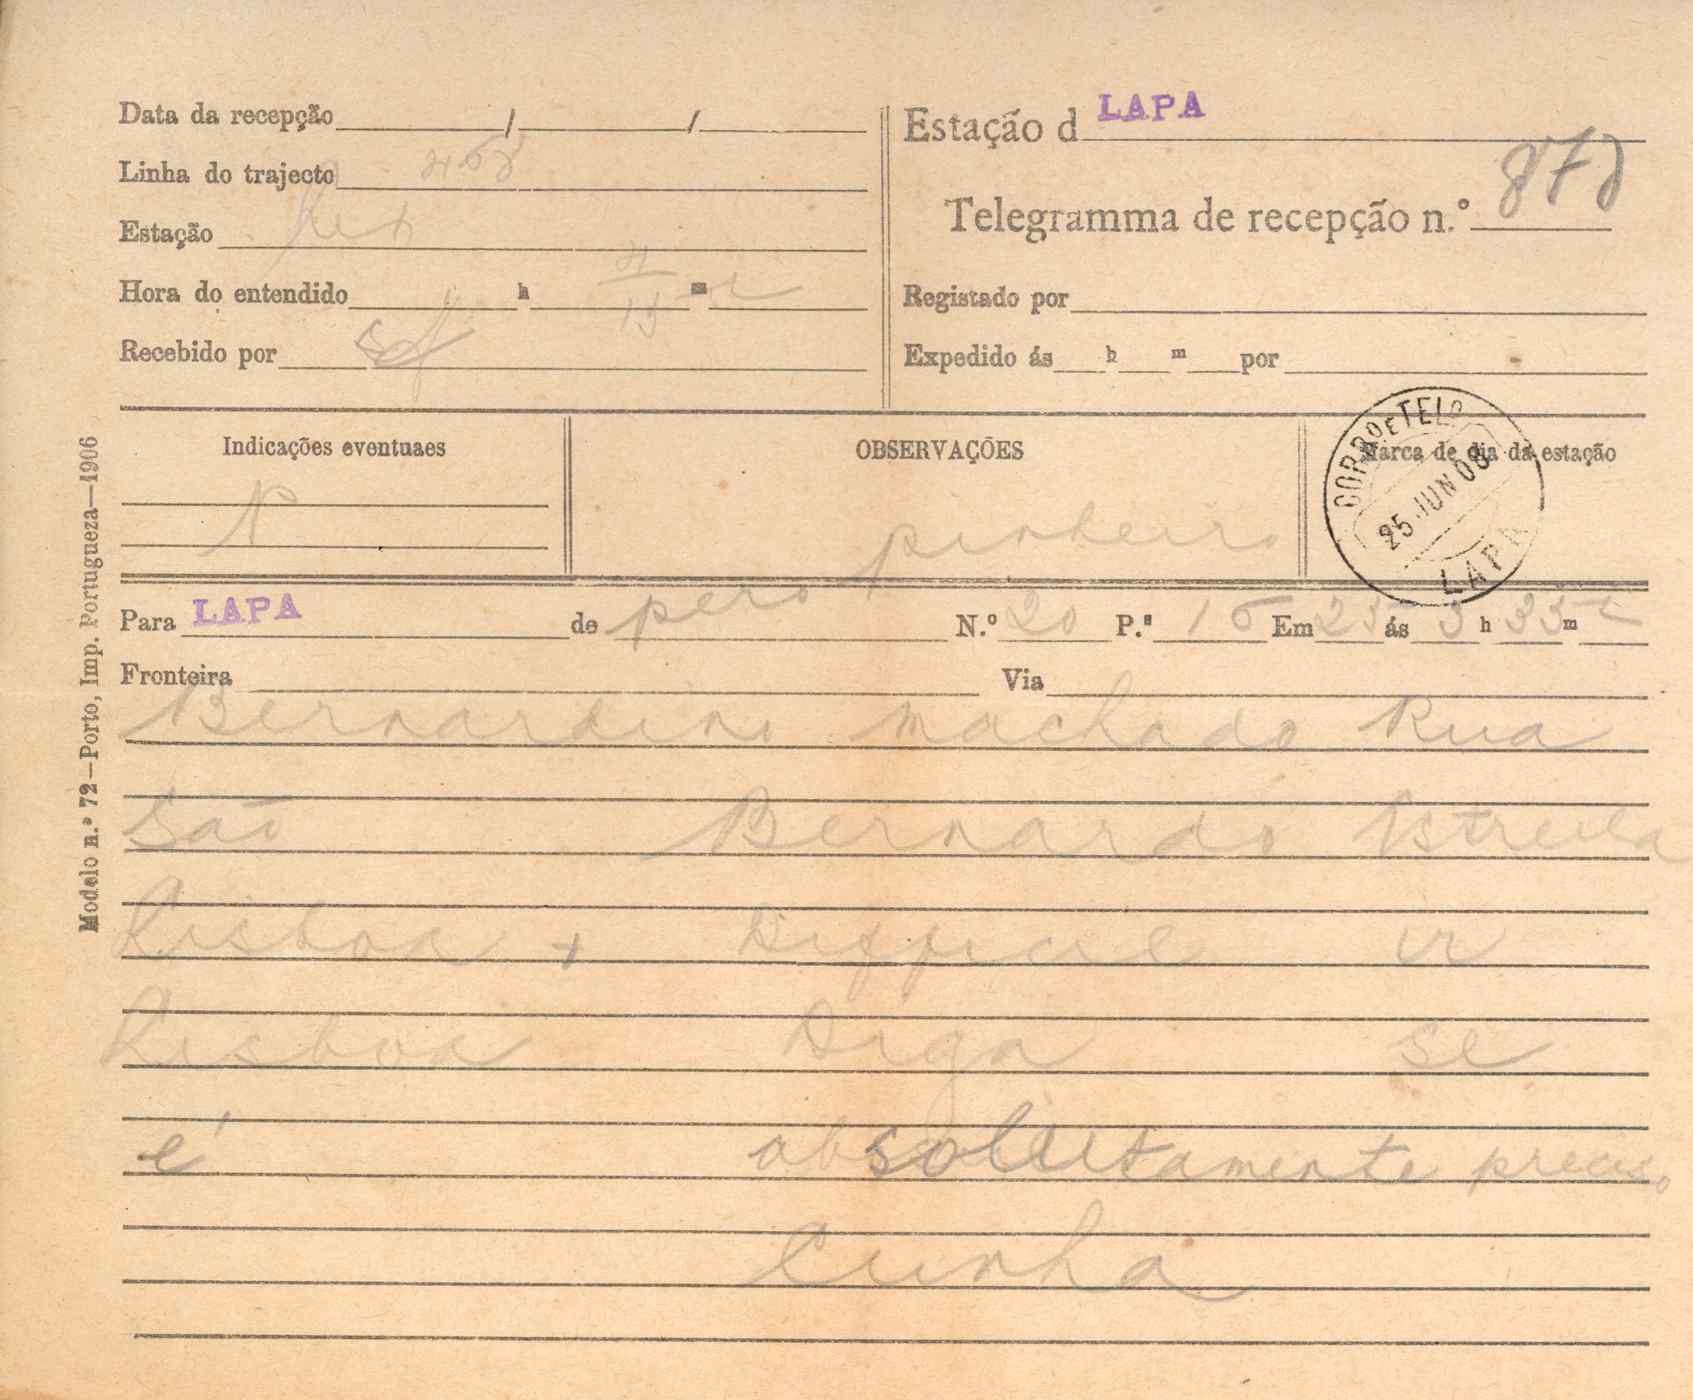 Data da recepção / /
Linha do trajecto
Estação
Hora do entendido h m
Recebido por
Estação d LAPA
Telegramma de recepção n.º 878
Registado por
Expedido ás h m por
Indicações eventuaes
OBSERVAÇÕES
Marca de dia da estação
CORRO E TELO
25 JUN 08
LAPA
Para LAPA de pero pinheiro N.º 20 P.ª 16 Em 25 ás 3 h 35 m
Fronteira Via
Bernardino Machado Rua
São Bernardo Estrella
Lisboa + Difficil ir
Lisboa Diga se
é absolutamente preciso
Cunha
Modelo n.º 72—Porto, Imp. Portugueza—1906